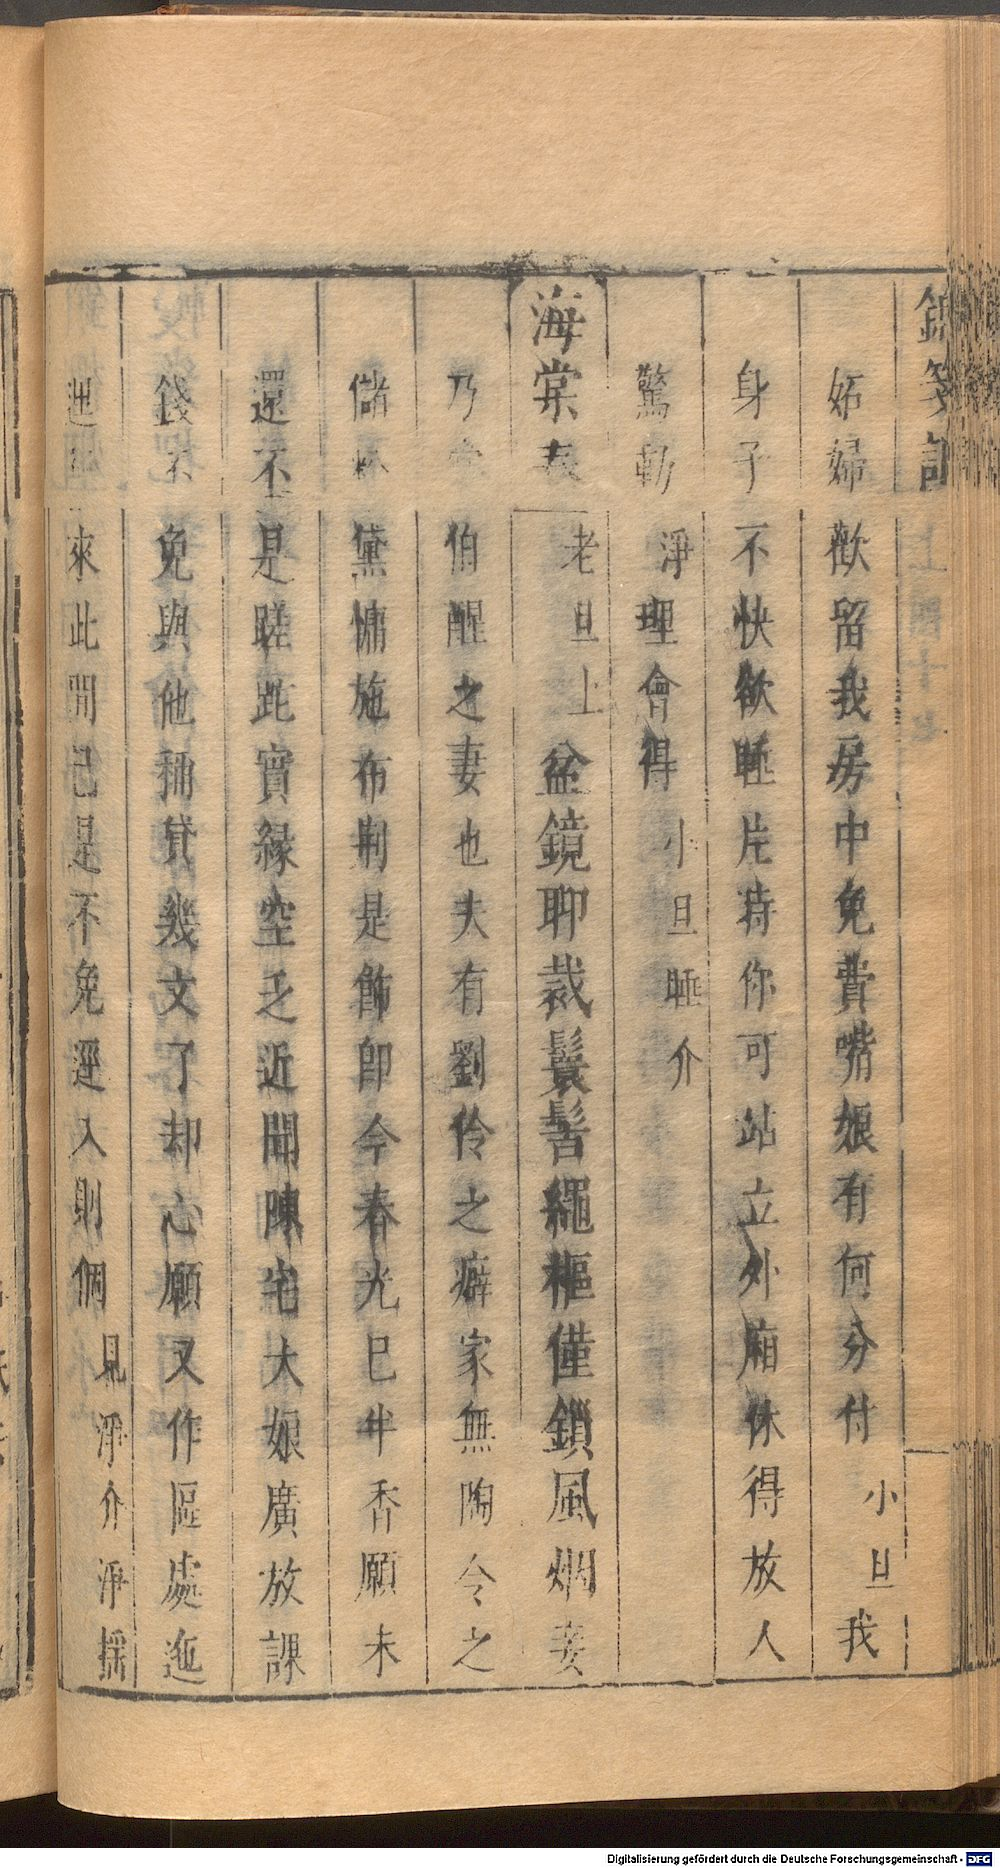 錦箋記
妬婦歡留我房中免費嘴娘有何分付小旦我
身子不快欲睡片時你可站立外廂休得放人
驚動淨理會得小旦睡介
海棠春老旦上盆鏡聊裁鬟髻繩樞僅鎖風烟妾
乃伯醒之妻也夫有劉伶之癖家無陶令之
儲黛慵施布荆是飾卽今春光巳半香願未
還不是蹉跎實緣空乏近聞陳宅大娘廣放課
錢不免與他稱貸幾文了却心願又作區處迤
逦來此間已是不免逕入則個見淨介淨揺
Digitalisierung gefördert durch die Deutsche Forschungsgemeinschaft - DFG